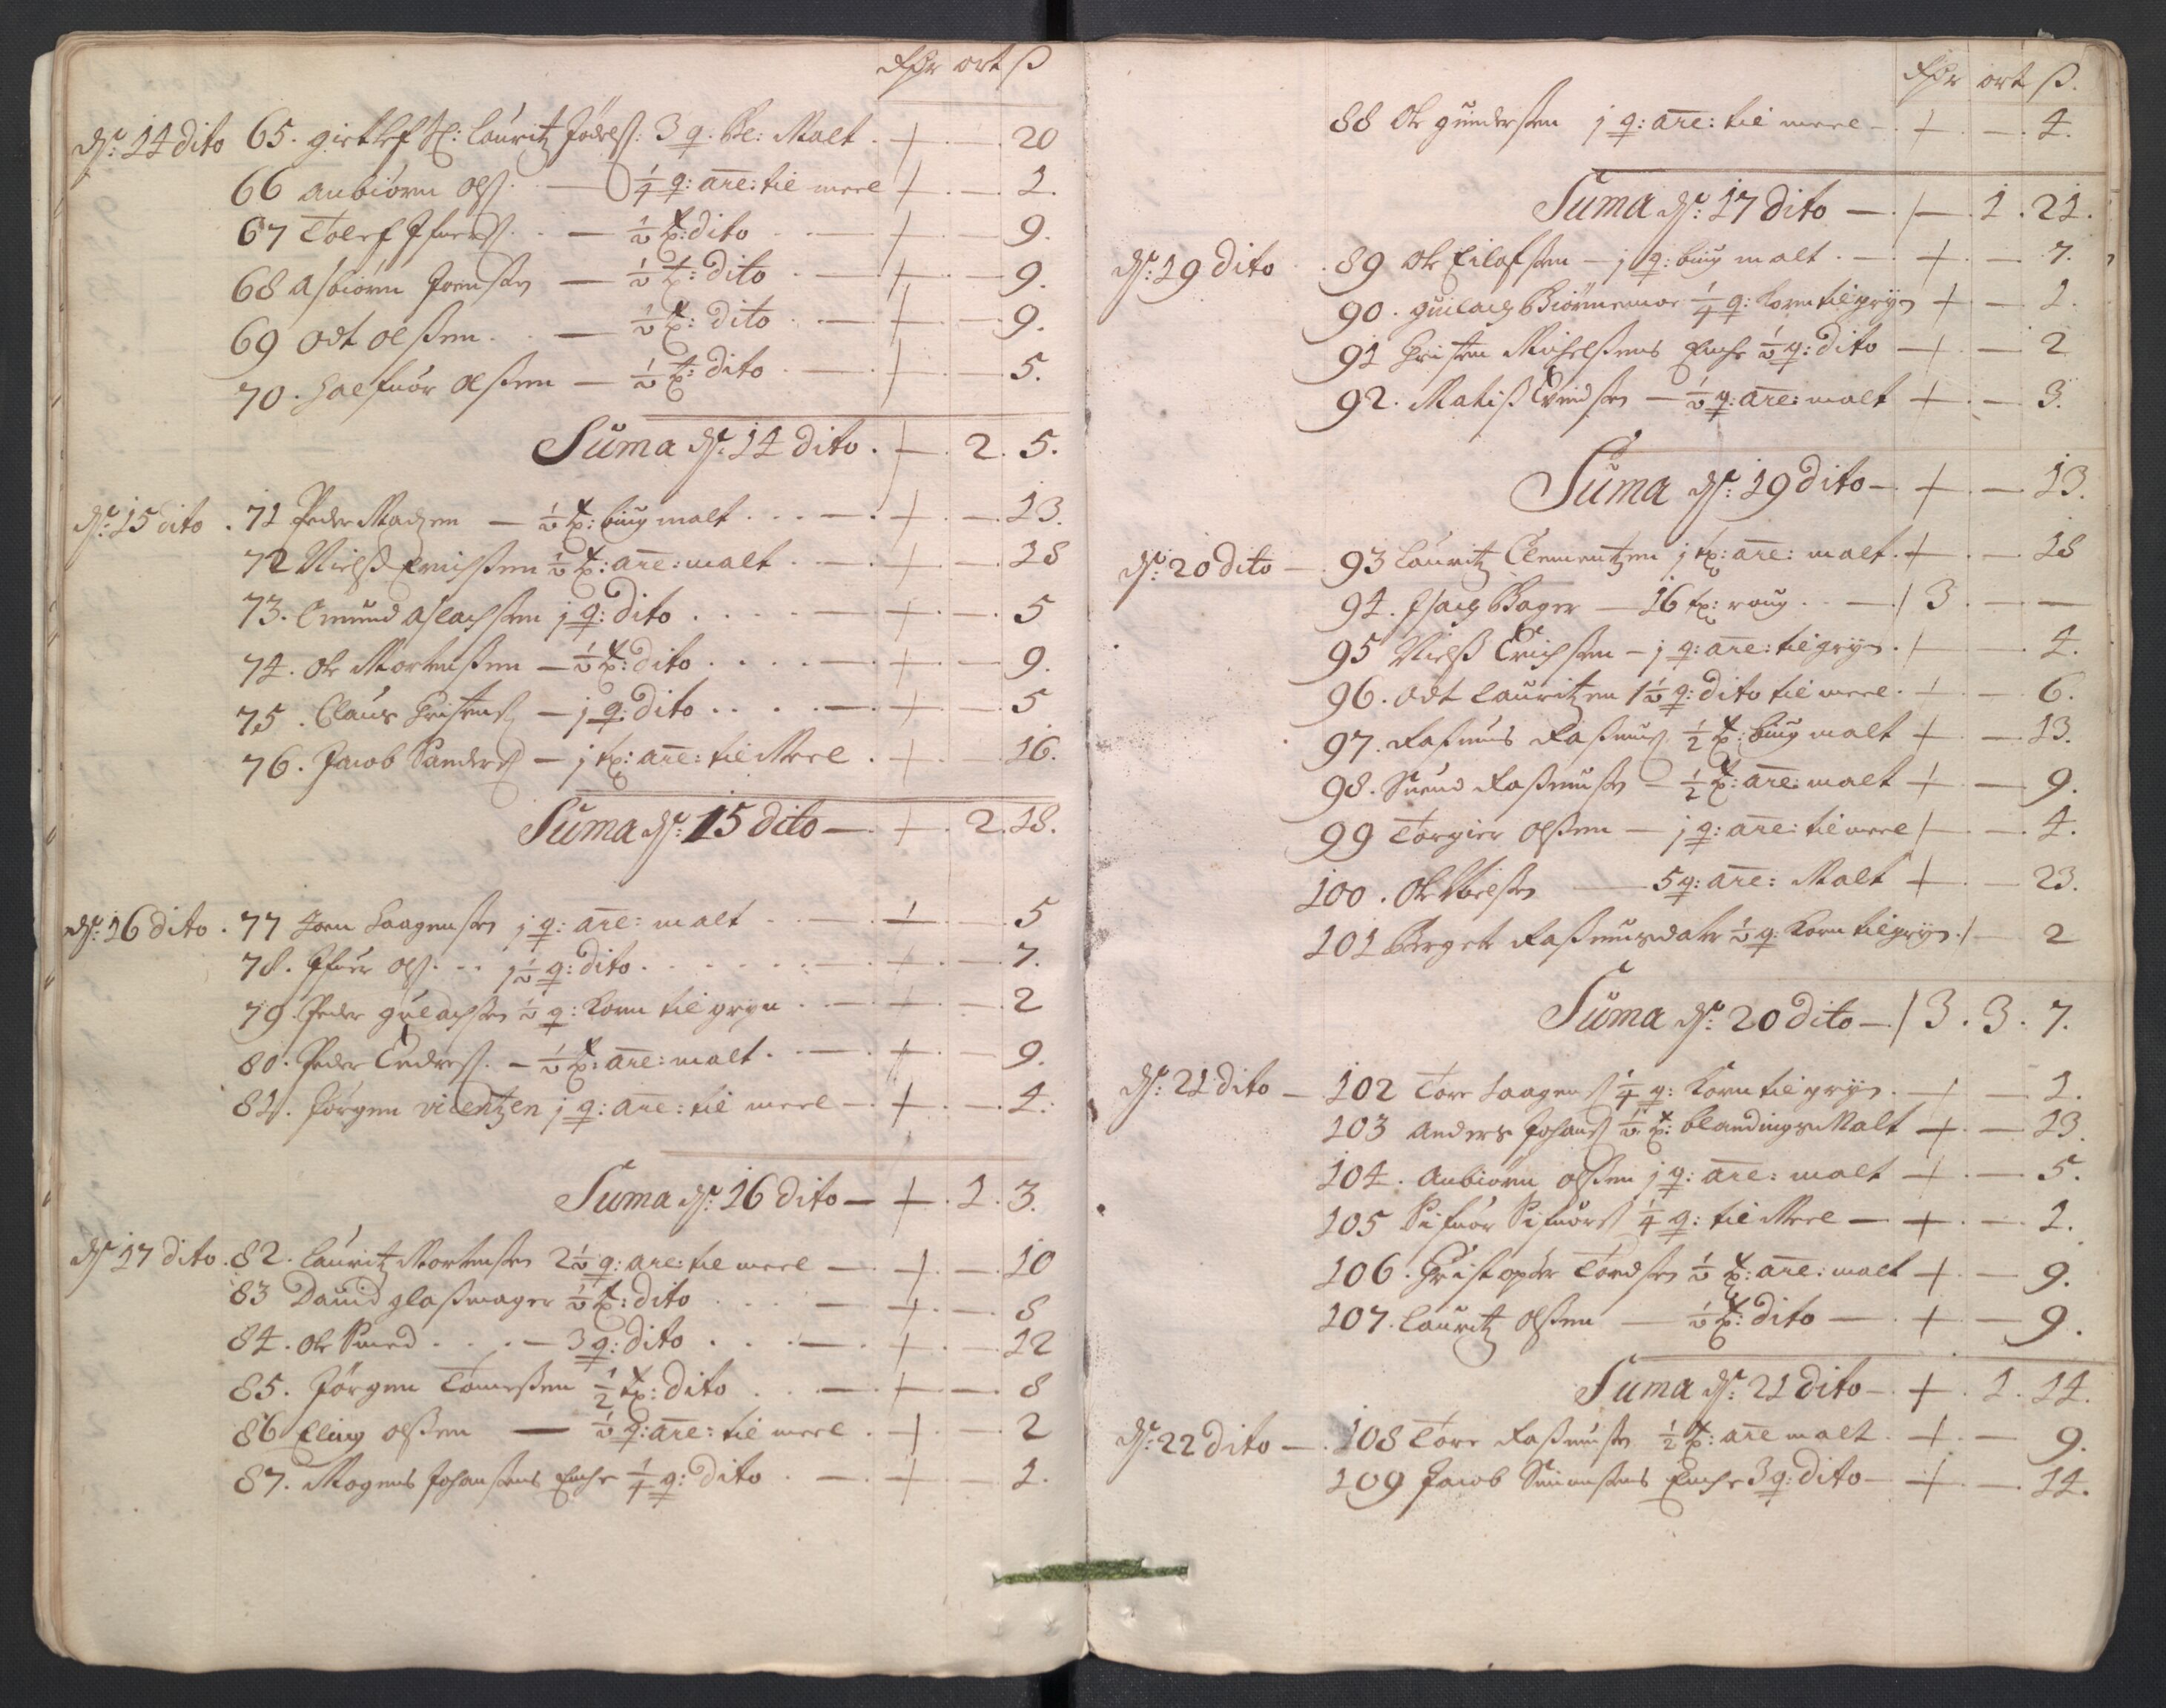 Rdr ort ß
d: 14 dito 65. giertlef Sl: Lauritz Jörelß: 3 q: Bl: Malt . + . — 20
66 Anbiörn Olß. — ¼ q: are: til meel + . — 1.
67 Tolef Ifuerß. — ½ tø: dito . — + — 9.
68 Asbiörn Joensen — ½ tø: dito . — + — 9.
69 Odt Olßen . — ½ tø: dito . — + — 9.
70. Halfuor Olßen — ½ tø: dito . — + — 5.
Suma d: 14 dito . + . 2. 5.
d: 15 dito . 71 Peder Madzen — ½ tø: biug malt . . . — + . — 13.
72 Nielß Ericßen ½ tø: are: malt . . — + — 18
73. Emund Aslachsen j q: dito . . . . — + . — 5
74. Ole Mortensen — ½ tø: dito . . . . — + — 9.
75. Claus Cristensß — j q: dito . . . — + . — 5
76. Jacob Sanderß — j tø: are: til Meel . + — 16.
Suma d: 15 dito — . + . 2. 18.
d: 16 dito . 77 Joen Haagensen j q: are: malt . . — + — 5
78. Ifuer Olß . . . 1½ q: dito . . . . — + — 7.
79. Peder Gulachsen ½ q: korn til gryn . . — + . — 2
80. Peder Endreß. — ½ tø: are: malt . . — + — 9.
81. Jörgen Vicentzen j q: are: til meel — . + . — 4.
Suma d: 16 dito — + . 1. 3.
d: 17 dito . 82. Lauritz Mortensen 2½ q: are: til meel — . + . — 10
83 Dauid glaßmager ½ tø: dito . . . — + . — 8
84. Ole Smed . . . — 3 q: dito . . . — + . — 12
85. Jörgen Tomeßen ½ tø: dito . . — + — 8
86 Eling Olßen — ½ q: are: til meel . + — 2
87. Mogens Johansens Enche ¼ q: dito . — + — 1.
Rdr ort ß.
88 Ole gundersen j q: are: til meel — . + . — 4.
Suma d: 17 dito — . + . 1. 21.
d: 19 dito . 89 Ole Eilafsen — j q: biug malt . — + . — 7.
90. guilaug Biörnemoe ¼ q: korn til gryn + . — 1.
91 Cristen Michelßens Enche ½ q: dito — + . — 2
92. Matiß Evindsen — ½ q: are: malt + . — 3.
Suma d: 19 dito — . + . — 13.
d: 20 dito — 93 Lauritz Clementzen j tø: are: malt . + . — 18
94. Isach Bager — 16 tø: roug . . — / 3 . — —
95 Nielß Erichsen — j q: are: til gryn . + . — 4.
96. Odt Lauritzen 1½ q: dito til meel . + — 6.
97. Rasmus Raßmusß ½ tø: biug malt + — 13.
98. Suend Raßmusen — ½ tø: are malt + — 9.
99 Torgier Olßen — j q: are: til meel + . — 4.
100. Ole Nielsen — 5 q: are: Malt + . — 23.
101 Birgete Raßmusdater ½ q: korn til gryn . + — 2
Suma d: 20 dito — . / 3 . 3 . 7.
d: 21 dito — 102 Tore Haagensß ¼ q: korn til gryn . — + — 1.
103 Anders Johansß ½ tø: blandings Malt + . — 13.
104. Anbiörn Olßen j q: are: malt — + . — 5.
105 Sifuor Sifuorß ¼ q: til Meel — + . — 1.
106. Cristopher Tordsen ½ tø: are: malt + . — 9.
107. Lauritz Olßen — ½ tø: dito — . + — 9.
Suma d: 21 dito — . + . 1. 14.
d: 22 dito — . 108 Tore Raßmusen ½ tø: are malt . + . — 9.
109 Jacob Simensens Enche 3 q: dito — + . — 14.